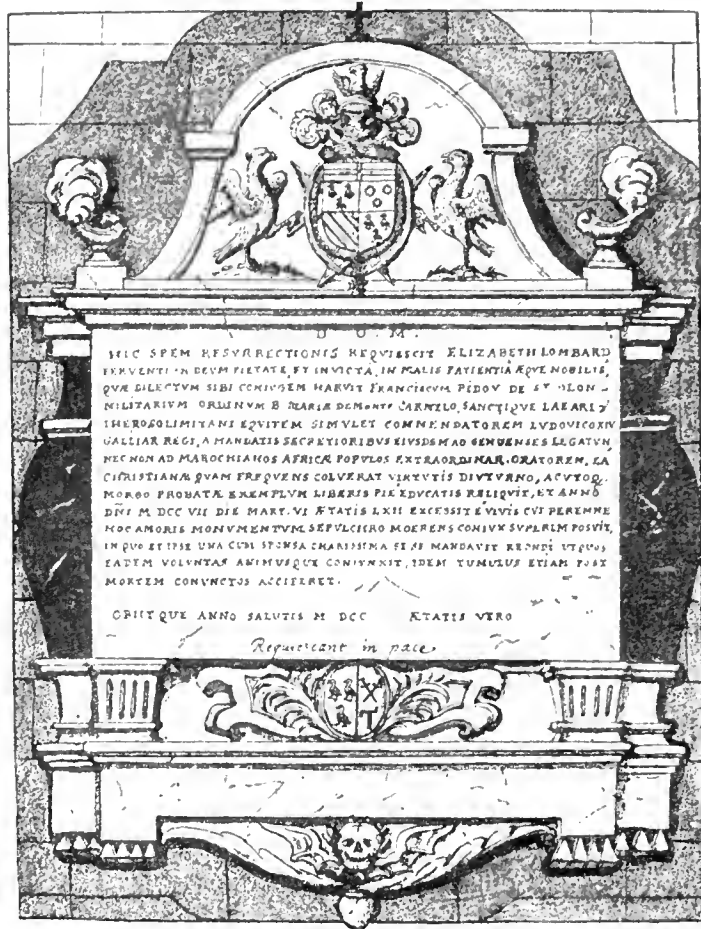 D. O. M.
HIC SPEM RESVRRECTIONIS REQVIESCIT ELIZABETH LOMBARD
FERVENTI IN DEUM PIETATE, ET INVICTA, IN MALIS PATIENTIA ÆQVE NOBILIS,
QVÆ DILECTVM SIBI CONIVGEM HABVIT FRANCISCVM PIDOV DE ST OLON
MILITARIVM ORDINVM B MARIÆ DE MONTE CARMELO, SANCTIQVE LAZARI
IHEROSOLIMITANI EQVITEM SIMVLET COMMENDATOREM LVDOVICO XIV
GALLIAR REGI, A MANDATIS SECRETIORIBVS EIVSDEM AD GENUENSES LEGATVM,
NEC NON AD MAROCHIANOS AFRICÆ POPVLOS EXTRAORDINAR. ORATOREM, EA
CHRISTIANÆ QVAM FREQVENS COLVERAT VIRTVTIS DIVTVRNO, ACVTOQ.
MORBO PROBATÆ EXEMPLVM LIBERIS PIE EDVCATIS RELIQVIT, ET ANNO
DÑI M DCC VII DIE MART. VI ÆTATIS LXII EXCESSIT È VIVIS CVI PERENNE
HOC AMORIS MONVMENTVM, SEPVLCHRO MOERENS CONIVX SVPERIM POSVIT,
IN QVO ET IPSE UNA CVM SPONSA CHARISSIMA SE SE MANDAVIT RECONDI UT QVOS
EADEM VOLVNTAS ANIMUSQVE CONIVNXIT, IDEM TVMVLVS ETIAM POST
MORTEM CONVNCTOS ACCIPERET.
OBIIT QVE ANNO SALVTIS M DCC ÆTATIS VERO
Requiescant in pace